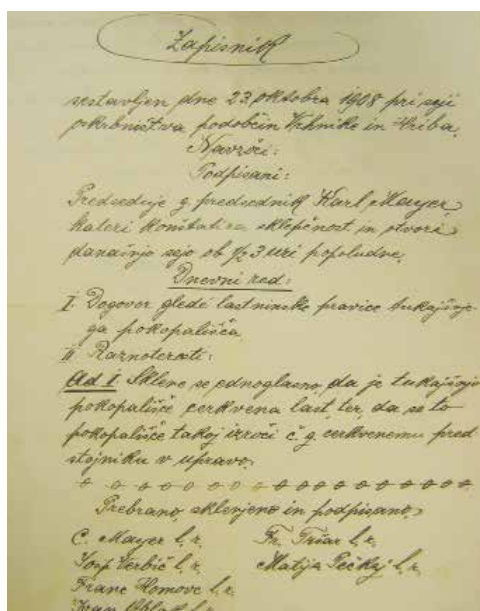 Zapisnik
sestavljen dne 23. oktobra 1908 pri seji
oskrbništva podobčin Vrhnike in Hriba.
Navzoči:
Podpisani:
Predseduje g. predsednik Karl Mayer,
kateri konštatira sklepčnost in otvori
današnjo sejo ob 1/2 3 uri popoludne.
Dnevni red:
I. Dogovor glede lastninske pravice tukajšnje-
ga pokopališča.
II. Raznoterosti:
Ad I. Sklene se ednoglasno, da je tukajšnjo
pokopališče cerkvena last, ter, da se to
pokopališče takoj izroči č. g. cerkvenemu pred
stojniku v upravo.
Prebrano, sklenjeno in podpisano.
C. Mayer l. r. Fr. Tršar l. r.
Josip Verbič l. r. Matija Pečkaj l. r.
Franc Homovc l. r.
Ivan l. r.